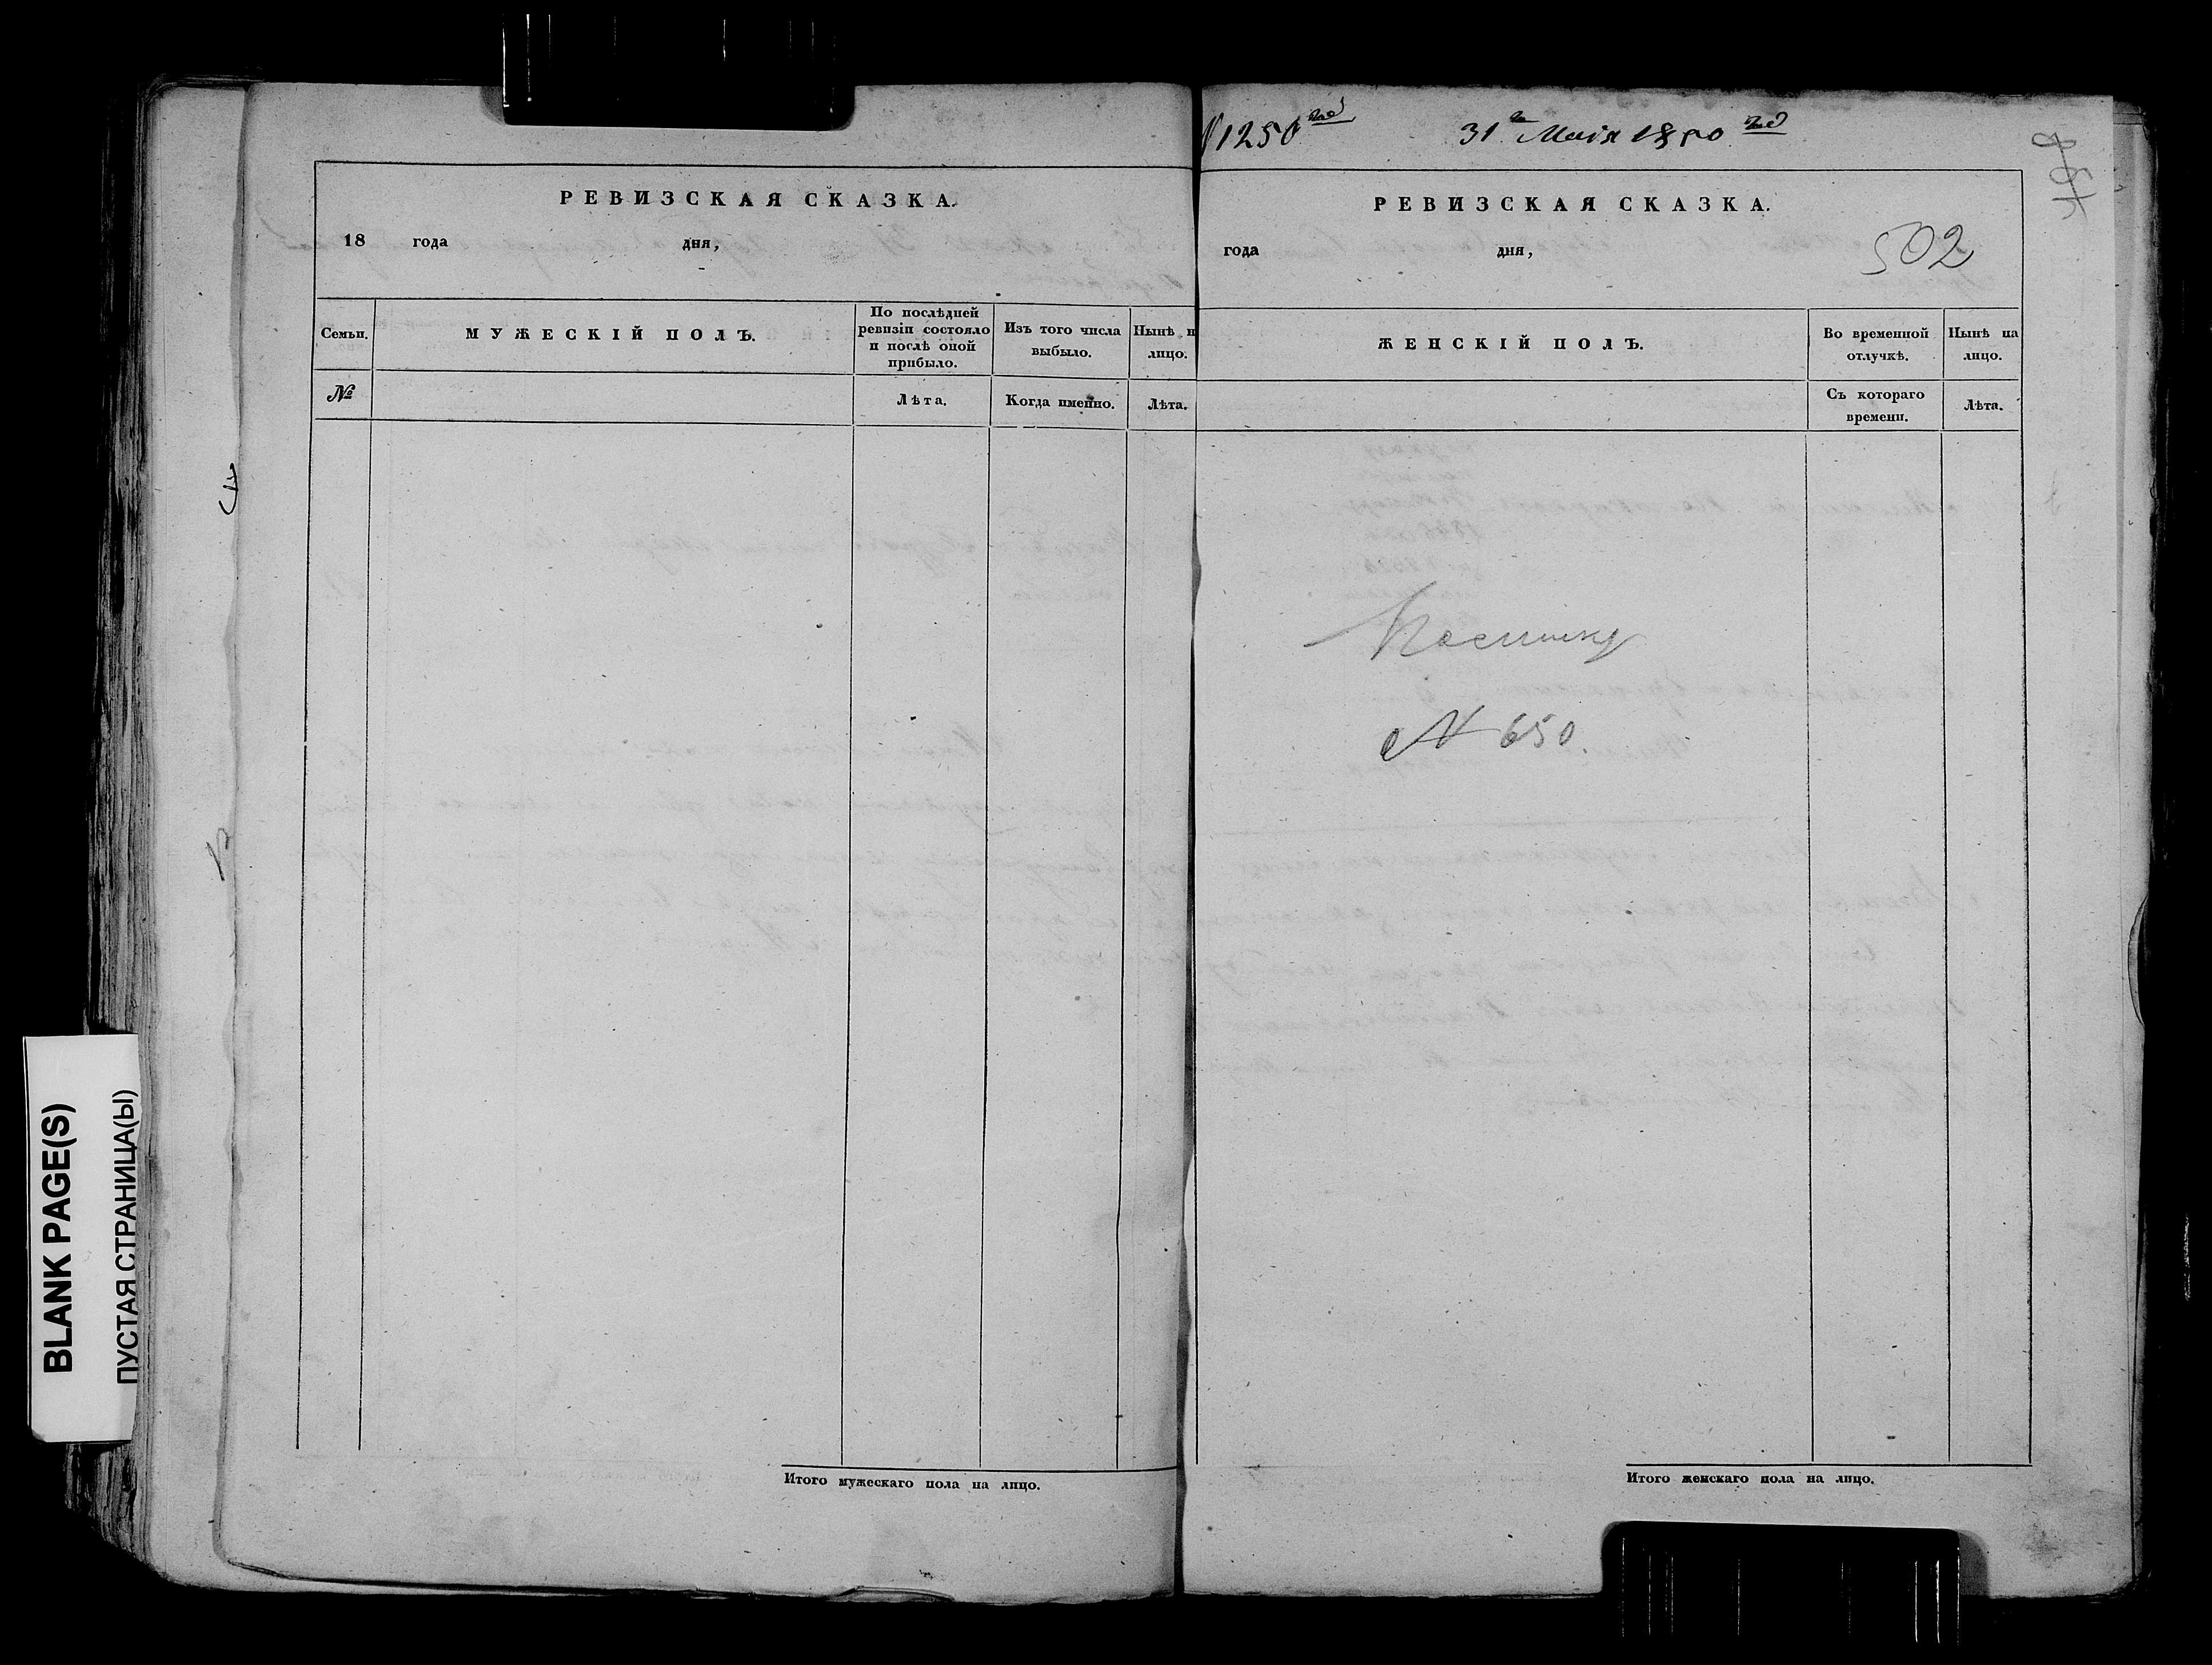 РЕВИЗСКАЯ СКАЗКА.
18 года дня,
Семьи. МУЖЕСКІЙ ПОЛЪ. По послѣдней ревизіи состояло и послѣ оной прибыло. Изъ того числа выбыло. Нынѣ н лицо.
№ Лѣта. Когда именно. Лѣта.
Итого мужескаго пола на лицо.
№1250 31 Маія 1850
РЕВИЗСКАЯ СКАЗКА.
года дня, 502
ЖЕНСКІЙ ПОЛЪ. Во временной отлучкѣ. Нынѣ на лицо.
Съ котораго времени. Лѣта.
№ 650.
Итого женскаго пола на лицо.
BLANK PAGE(S)
ПУСТАЯ СТРАНИЦА(Ы)